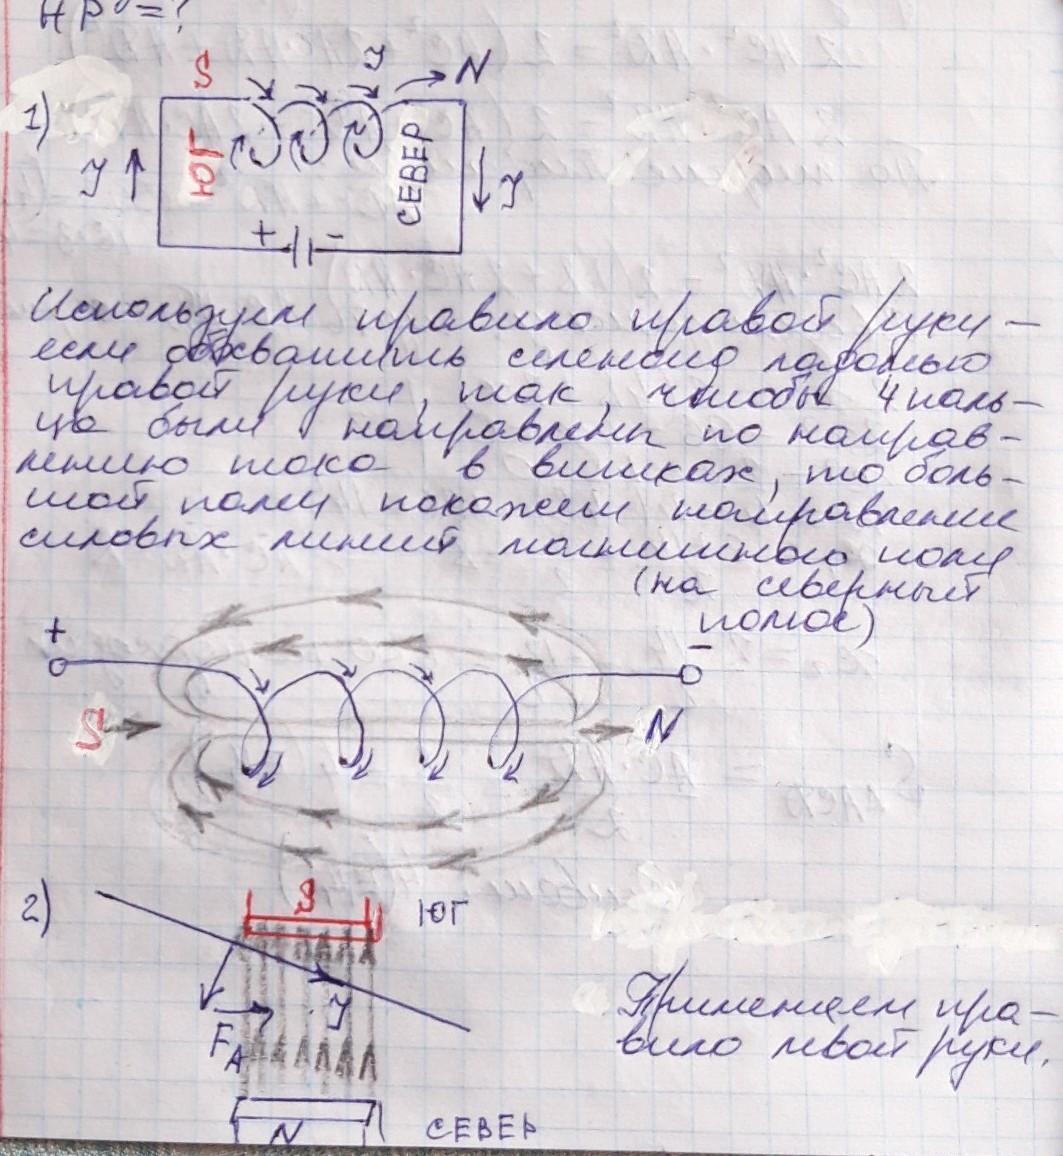 HP = ?
S
I
N
1)
I
ЮГ
СЕВЕР
I
+ -
Используем правило правой руки –
если обхватить селеноид ладонью
правой руки, так, чтобы 4 паль-
ца были направлены по направ-
лению тока в витках, то боль-
шой палец покажет направление
силовых линий магнитного поля
(на северный
полюс)
+ -
S N
2)
S ЮГ
I
F_A
Применяем пра-
вило левой руки.
N СЕВЕР